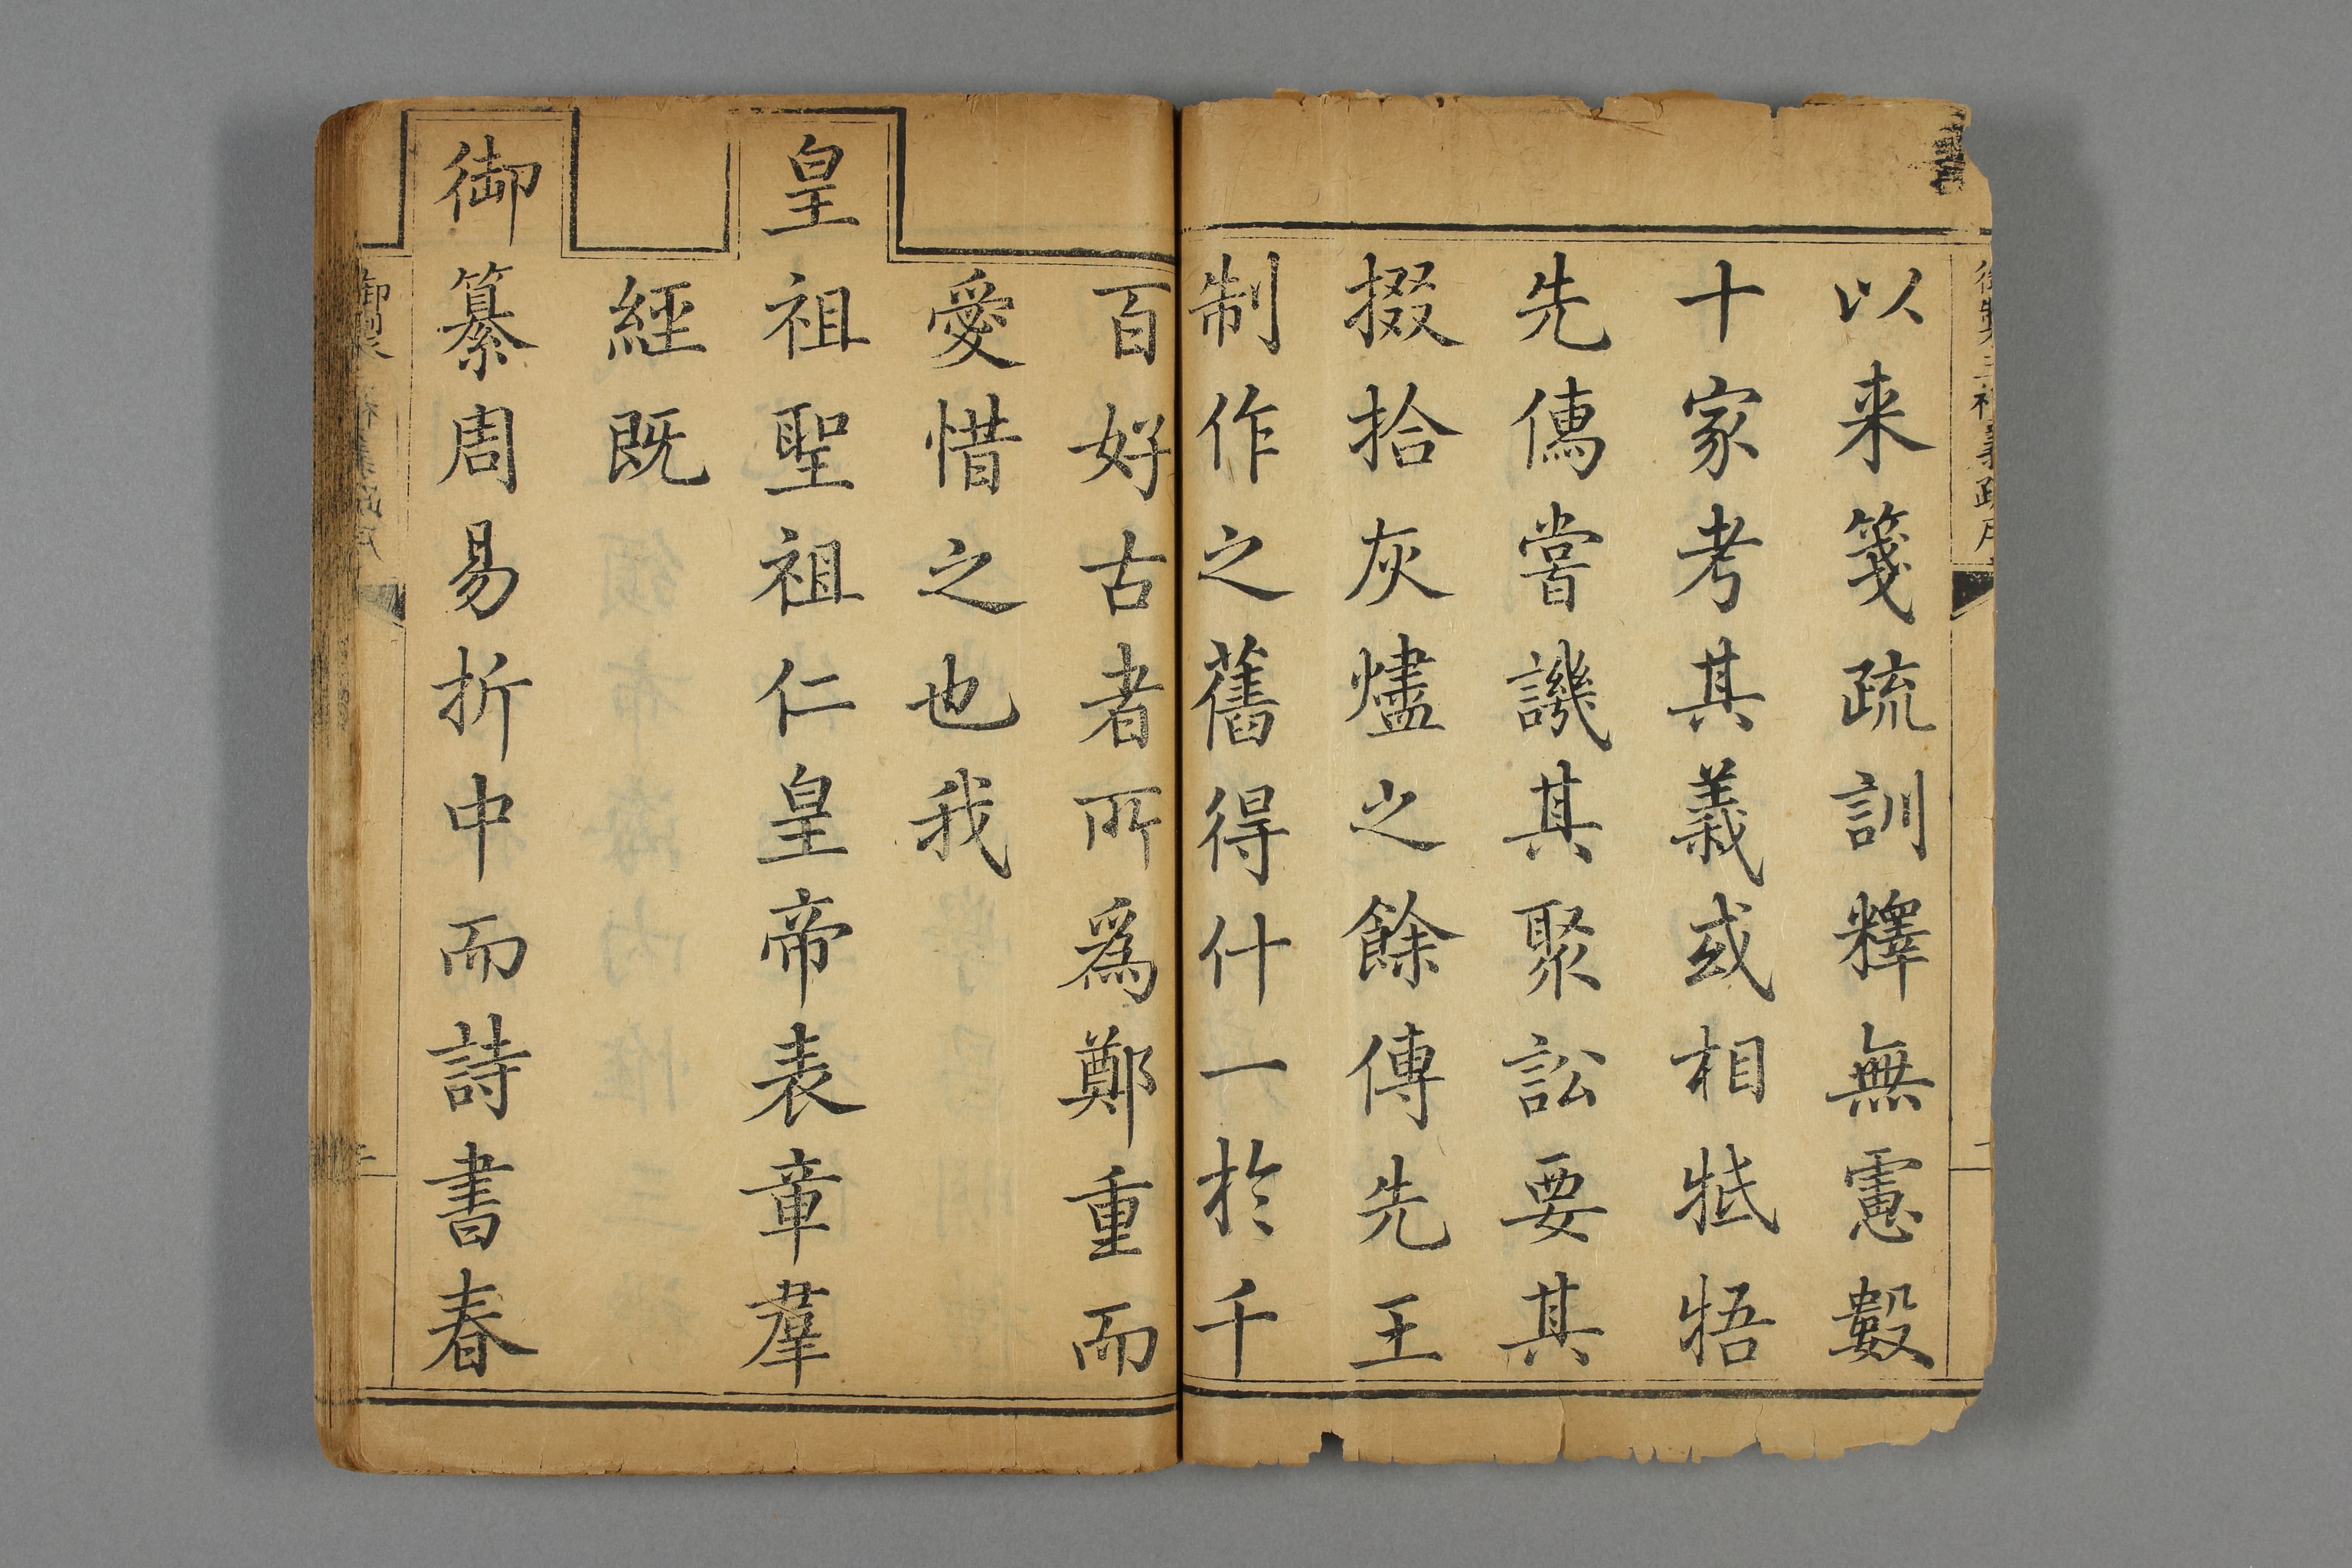 以来箋疏訓釋無慮數
十家考其義或相牴牾
先儒嘗譏其聚訟要其
掇拾灰燼之餘傳先王
制作之舊得什一於千
百好古者所爲鄭重而
愛惜之也我
皇祖聖祖仁皇帝表章羣
經既
御纂周易折中而詩書春
御製